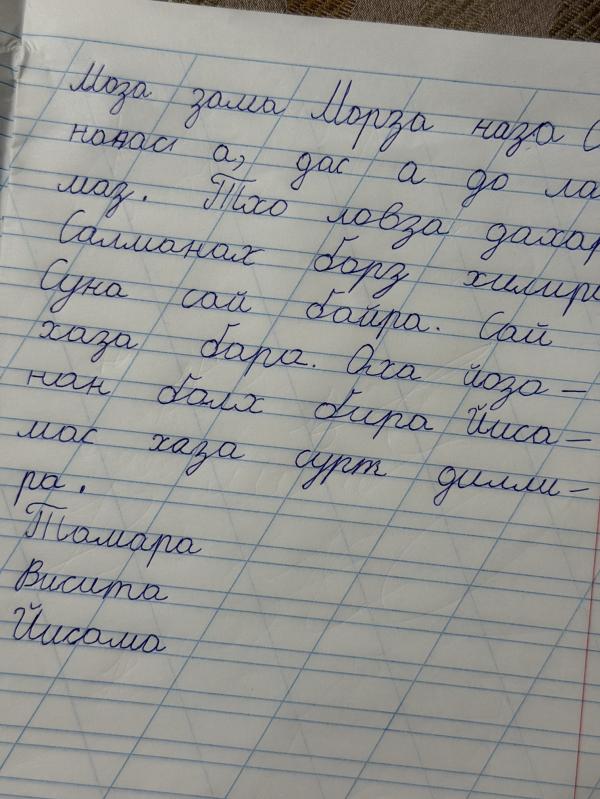 Моза зама Морза наза
нанас а, дас а до ла
маз. Тхо ловза дахар
Салманах барз хилира
Суна сай байра. Сай
хаза бара. Оха йоза-
нан балх бира Йиса-
мас хаза сурт дилли-
ра.
Тамара
Висита
Йисама